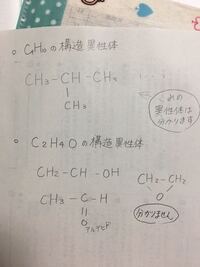 ○ C₄H₁₀の構造異性体
CH₃-CH-CH₃
CH₃
異性体は
分かります
○ C₂H₄Oの構造異性体
CH₂-CH-OH
CH₂-CH₂
O
CH₃-C-H
O
アルデヒド
分かりません